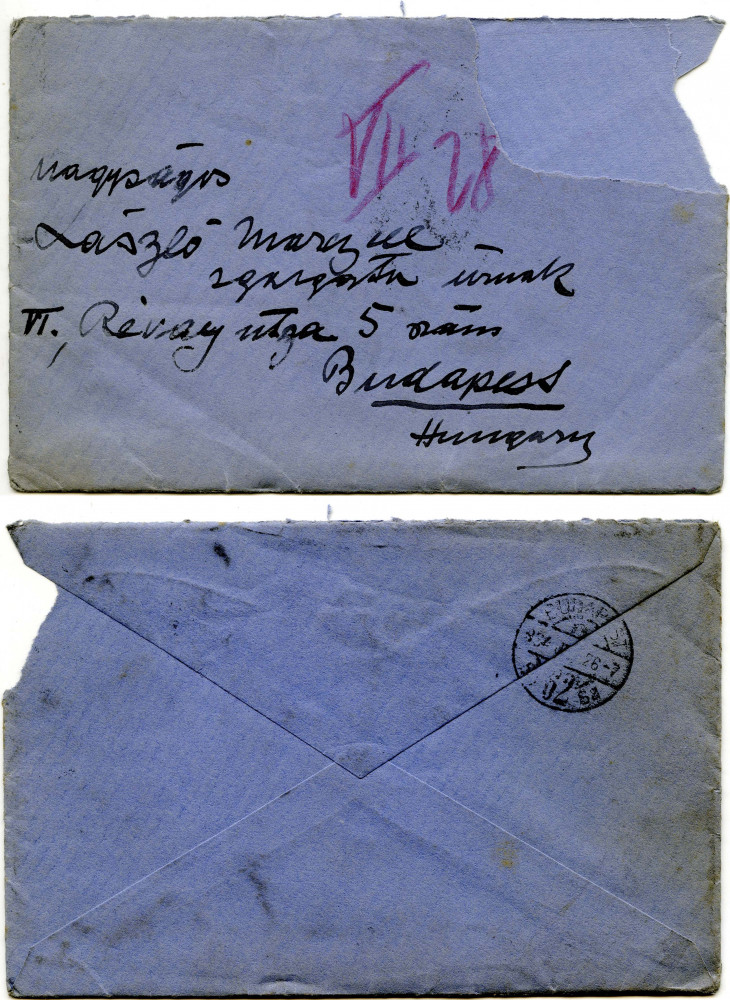 VII 28
Nagyságos
László Marczell
igazgató úrnak
VI., Révay utza 5 szám
Budapest
Hungary
BUDAPEST
62